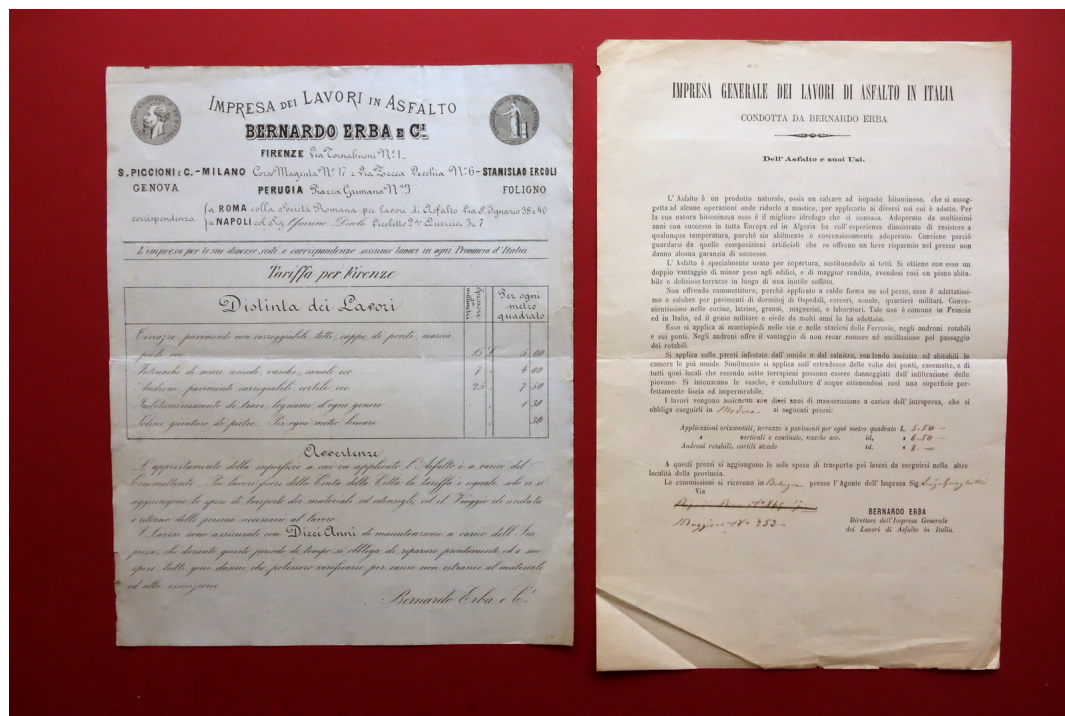 IMPRESA DEI LAVORI IN ASFALTO
BERNARDO ERBA E C.I
FIRENZE Via Tornabuoni N.o 1_
S. PICCIONI E C. - MILANO Corso Magenta N.o 17 e Via Zecca Vecchia N.o 6 - STANISLAO ERCOLI
GENOVA PERUGIA Piazza Grimana N.o 3 FOLIGNO
corrispondenza
fa ROMA colla Società Romana per lavori di Asfalto Via S. Ignazio 38 e 40
fa NAPOLI col Sig. Vicoletto 2.do Quercia 3 e 7
L'impresa per le sue diverse sedi e corrispondenze assume lavori in ogni Provincia d'Italia
Tariffa per Firenze
Distinta dei Lavori
Spessore millimetri
Per ogni metro quadrato
Terrazze, pavimenti non carreggiabili, tetti, cappe di ponti, marcia
piedi ecc. 15 £ 5 00
Intonachi di muri umidi, vasche, canali ecc 7 " 4 00
Androni, pavimenti carregiabili, cortili ecc 25 " 7 50
Imbituminamento di travi, legname d'ogni genere " 1 30
di pietra. Per ogni metro lineare " 30
Avvertenze
L'apprestamento della superficie a cui va applicato l'Asfalto è a carico del
Committente. Pei lavori fuori della Cinta della Città la tariffa è eguale, solo vi si
aggiungono le spese di trasporto dei materiali ed utensigli, ed il Viaggio di andata
e ritorno delle persone necessarie al lavoro
I Lavori sono assicurati con Dieci Anni di manutenzione a carico dell'Im
presa, che durante questo periodo di tempo si obbliga di riparare prontamente ed a sue
spese tutti quei danni che potessero verificarsi per cause non estranee al materiale
ed alla esecuzione
Bernardo Erba e C.i
IMPRESA GENERALE DEI LAVORI DI ASFALTO IN ITALIA
CONDOTTA DA BERNARDO ERBA
Dell'Asfalto e suoi Usi.
L'Asfalto è un prodotto naturale, ossia un calcare ad impasto bituminoso, che si assog-
getta ad alcune operazioni onde ridurlo a mastice, per applicarlo ai diversi usi cui è adatto. Per
la sua natura bituminosa esso è il migliore idrofugo che si conosca. Adoperato da moltissimi
anni con successo in tutta Europa ed in Algeria ha coll'esperienza dimostrato di resistere a
qualunque temperatura, purchè sia abilmente e coscenziosamente adoperato. Conviene perciò
guardarsi da quelle composizioni artificiali che se offrono un lieve risparmio nel prezzo non
danno alcuna garanzia di successo.
L'Asfalto è specialmente usato per copertura, sostituendolo ai tetti. Si ottiene con esso un
doppio vantaggio di minor peso agli edifici, e di maggior rendita, avendosi così un piano abita-
bile e deliziose terrazze in luogo di una inutile soffitta.
Non offrendo commettiture, perchè applicato a caldo forma un sol pezzo, esso è adattatissi-
mo e salubre per pavimenti di dormitoj di Ospedali, carceri, scuole, quartieri militari. Conve-
nientissimo nelle cucine, latrine, granai, magazzini, e laboratori. Tale uso è comune in Francia
ed in Italia, ed il genio militare e civile da molti anni lo ha adottato.
Esso si applica ai marciapiedi nelle vie e nelle stazioni delle Ferrovie, negli androni rotabili
e sui ponti. Negli androni offre il vantaggio di non recar rumore nè oscillazione pel passaggio
dei rotabili.
Si applica sulle pareti infestate dall'umido o dal salnitro, rendendo asciutte ed abitabili le
camere le più umide. Similmente si applica sull'estradosso delle volte dei ponti, casematte, e di
tutti quei locali che essendo sotto terrapieni possono essere danneggiati dall'infiltrazione delle
piovane. Si intonacano le vasche, e condutture d'acqua ottenendosi così una superficie per-
fettamente liscia ed impermeabile.
I lavori vengono assicurati con dieci anni di manutenzione a carico dell'intrapresa, che si
obbliga eseguirli in Modena ai seguenti prezzi:
Applicazioni orizzontali, terrazze e pavimenti per ogni metro quadrato L. 5.50 -
" verticali e centinate, vasche ecc. id. " 6.50 -
Androni rotabili, cortili strade id. " 8. -
A questi prezzi si aggiungono le sole spese di trasporto pei lavori da eseguirsi nelle altre
località della provincia.
Le commissioni si ricevono in Bologna presso l'Agente dell'Impresa Sig. Luigi
Via
Maggiore N.o 253 -
BERNARDO ERBA
Direttore dell'Impresa Generale
dei Lavori di Asfalto in Italia.